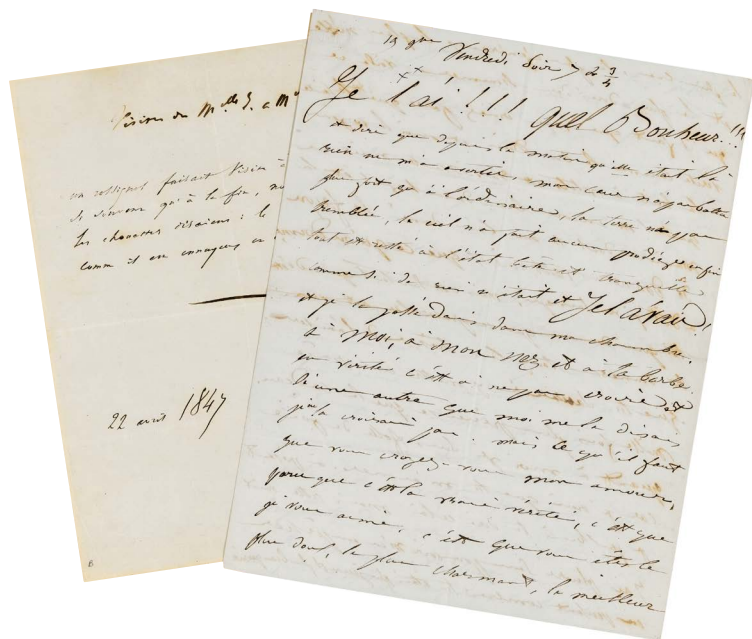 Visions de Melle
un rossignol faisait
qu'à la fin,
les chouettes disaient : le
comme il en
22 avril 1847
B
Vendredi Soir 7 h 3/4
Je l'ai !!! quel Bonheur !!!
et dire que depuis le matin qu'elle était là
rien ne m'a avertie, mon cœur n'a pas battu
plus fort qu'à l'ordinaire, la terre n'a pas
tremblé, le ciel n'a fait aucun prodige enfin
tout est resté à l'état bête et tranquille
comme si de rien n'était et Je l'avais !
et je la posté dans ma chambre,
à moi, à mon nez et à la barbe
en vérité c'est à ne pas croire et
si une autre que moi me le disait
je ne la croirais pas. mais ce qu'il faut
que vous croyez vous mon amour,
parce que c'est la vraie vérité, c'est que
je vous aime, c'est que vous êtes le
plus doux, le plus charmant, le meilleur